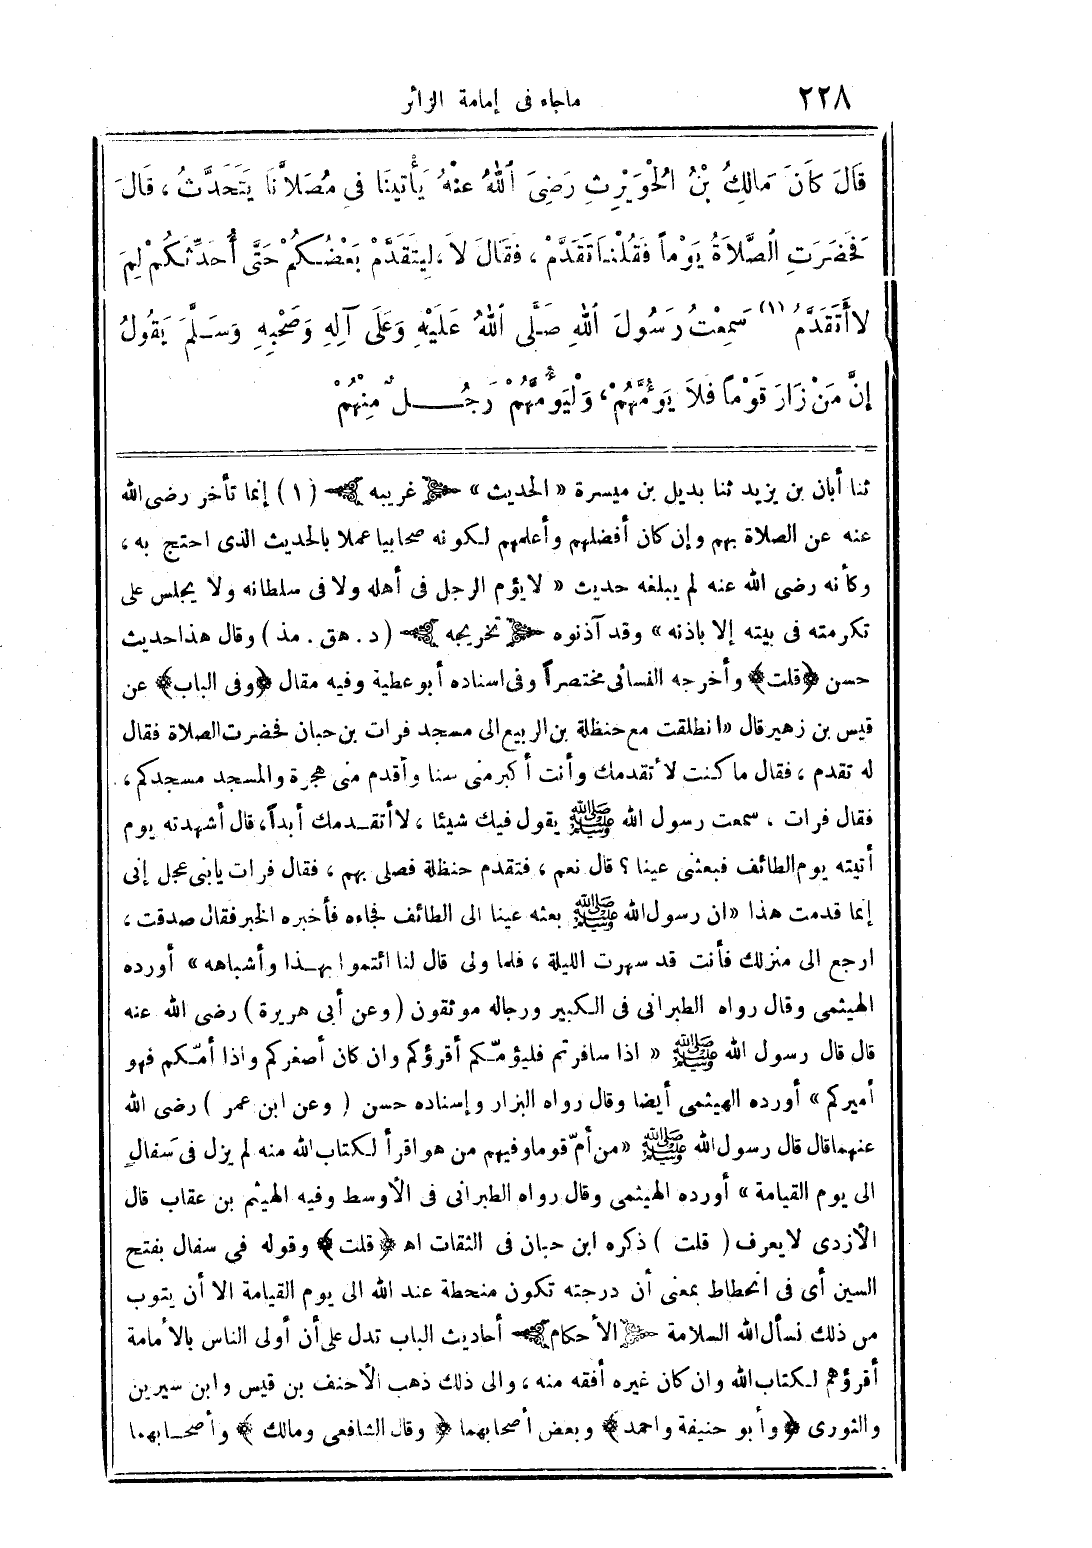 ٢٢٨ ماجاء فى إمامة الزائر
قَالَ كَانَ مَالِكُ بْنُ الْحُوَيْرِثِ رَضِىَ اللهُ عَنْهُ يَأْتِينَا فِى مُصَلاَّنَا يَتَحَدَّثُ، قَالَ
فَحَضَرَتِ الصَّلاَةُ يَوْماً فَقُلْنَا تَقَدَّمْ، فَقَالَ لاَ، لِيَتَقَدَّمْ بَعْضُكُمْ حَتَّى أُحَدِّثَكُمْ لِمَ
لاأَتَقَدَّمُ (١) سَمِعْتُ رَسُولَ اللهِ صَلَّى اللهُ عَلَيْهِ وَعَلَى آلِهِ وَصَحْبِهِ وَسَلَّمَ يَقُولُ
إِنَّ مَنْ زَارَ قَوْماً فَلاَ يَؤُمَّهُمْ، وَلْيَؤُمَّهُمْ رَجُلٌ مِنْهُمْ
ثنا أبان بن يزيد ثنا بديل بن ميسرة « الحديث » ﴿غريبه﴾ (١) إنما تأخر رضى الله
عنه عن الصلاة بهم وإن كان أفضلهم وأعلمهم لكونه صحابيا عملا بالحديث الذى احتج به ،
وكأنه رضى الله عنه لم يبلغه حديث « لايؤم الرجل فى أهله ولا فى سلطانه ولا يجلس على
تكرمته فى بيته إلا باذنه » وقد آذنوه ﴿تخريجه﴾ (د . هق . مذ) وقال هذا حديث
حسن ﴿قلت﴾ وأخرجه النسائى مختصراً وفى اسناده أبو عطية وفيه مقال ﴿وفى الباب﴾ عن
قيس بن زهير قال «انطلقت مع حنظلة بن الربيع الى مسجد فرات بن حبان فحضرت الصلاة فقال
له تقدم ، فقال ماكنت لأتقدمك وأنت أكبر منى سنا وأقدم منى هجرة والمسجد مسجدكم ،
فقال فرات ، سمعت رسول الله ﷺ يقول فيك شيئا ، لاأتقدمك أبداً، قال أشهدته يوم
أتيته يوم الطائف فبعثنى عينا ؟ قال نعم ، فتقدم حنظلة فصلى بهم ، فقال فرات يابنى عجل إنى
إنما قدمت هذا «ان رسول الله ﷺ بعثه عينا الى الطائف فجاءه فأخبره الخبر فقال صدقت ،
ارجع الى منزلك فأنت قد سهرت الليلة ، فلما ولى قال لنا ائتموا بهذا وأشباهه » أورده
الهيثمى وقال رواه الطبرانى فى الكبير ورجاله موثقون (وعن أبى هريرة) رضى الله عنه
قال قال رسول الله ﷺ « اذا سافرتم فليؤمّكم أقرؤكم وان كان أصغركم واذا أمّكم فهو
أميركم » أورده الهيثمى أيضا وقال رواه البزار وإسناده حسن (وعن ابن عمر) رضى الله
عنهما قال قال رسول الله ﷺ «من أمّ قوما وفيهم من هو اقرأ لكتاب الله منه لم يزل فى سَفال
الى يوم القيامة » أورده الهيثمى وقال رواه الطبرانى فى الأوسط وفيه الهيثم بن عقاب قال
الأزدى لايعرف (قلت) ذكره ابن حبان فى الثقات اه ﴿قلت﴾ وقوله في سفال بفتح
السين أى فى انحطاط بمعنى أن درجته تكون منحطة عند الله الى يوم القيامة الا أن يتوب
من ذلك نسأل الله السلامة ﴿الأحكام﴾ أحاديث الباب تدل على أن أولى الناس بالأمامة
أقرؤهم لكتاب الله وان كان غيره أفقه منه ، والى ذلك ذهب الأحنف بن قيس وابن سيرين
والثورى ﴿وأبو حنيفة واحمد﴾ وبعض أصحابهما ﴿وقال الشافعى ومالك﴾ وأصحابهما